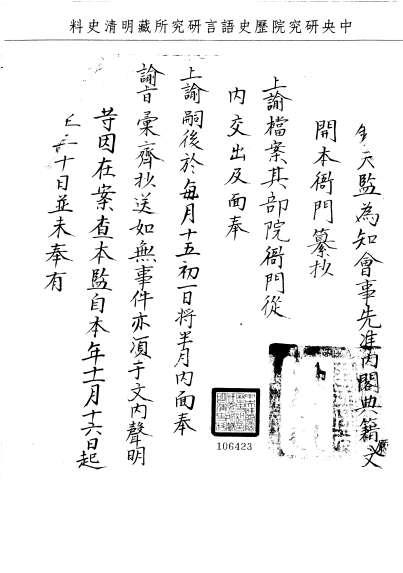 中央研究院歷史語言研究所藏明清史料
天監為知會事先准內閣典籍廳文
開本衙門纂抄
上諭檔案其部院衙門從
內交出及面奉
上諭嗣後於每月十五初一日将半月內面奉
諭旨彙齊抄送如無事件亦須于文內聲明
等因在案查本監自本年十一月十六日起
三十日並未奉有
106423